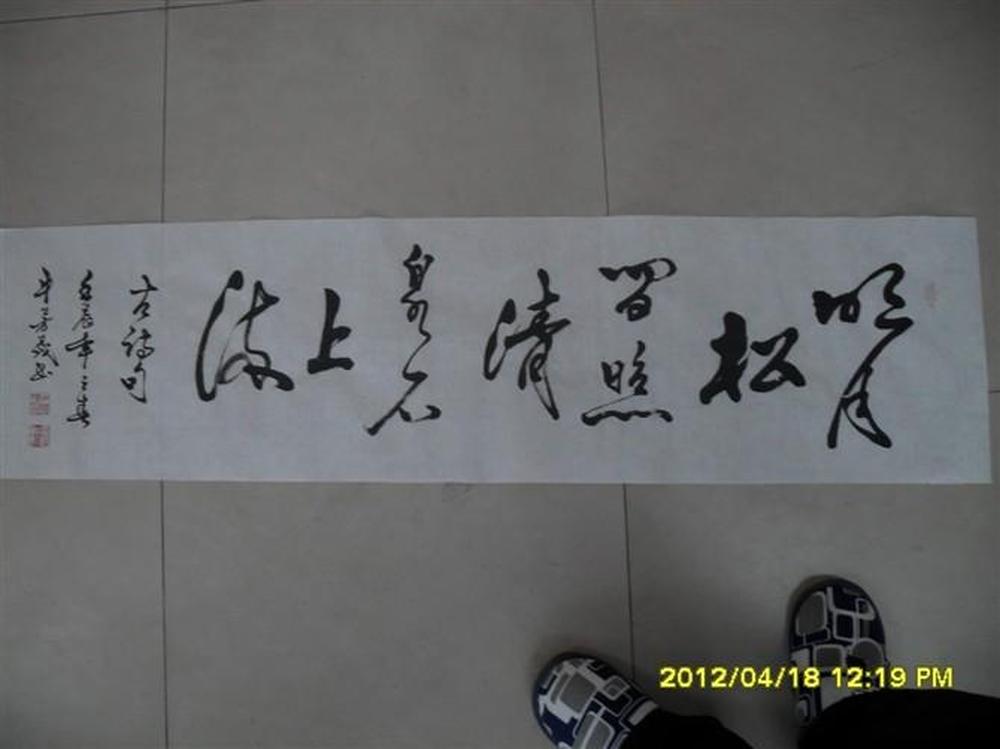 明月
松
間照
清
泉石
上
流
古詩句
壬辰年之春
2012/04/18 12:19 PM